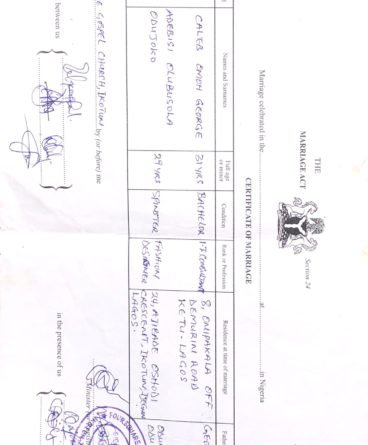 THE
MARRIAGE ACT
Section 24
CERTIFICATE OF MARRIAGE
Marriage celebrated in the at in Nigeria
Names and Surnames
Full age or minor
Condition
Rank or Profession
Residence at time of marriage
CALEB OMOH GEORGE
31 YRS
BACHELOR
8, ONIPAKALA OFF
DEMURIN ROAD
KETU - LAGOS
ADEBISI OLUBUSOLA
ODUJOKO
29 YRS
SPINSTER
FASHION
DESIGNER
24, AJIBADE OSHODI
CRESCENT, IKOTUN,
LAGOS.
GOSPEL CHURCH, IKOTUN by (or before) me
Minister
between us
in the presence of us
FOURSQUARE